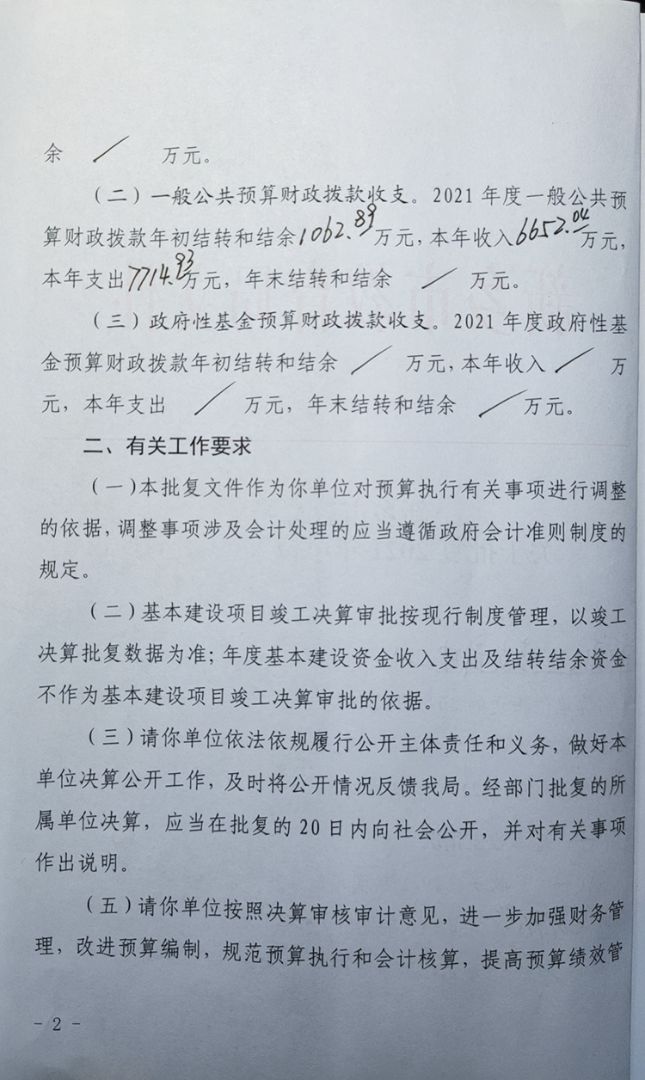 余 / 万元。
（二）一般公共预算财政拨款收支。2021 年度一般公共预
算财政拨款年初结转和结余1062.89万元，本年收入6652.04万元，
本年支出7714.93万元，年末结转和结余 / 万元。
（三）政府性基金预算财政拨款收支。2021 年度政府性基
金预算财政拨款年初结转和结余 / 万元，本年收入 / 万
元，本年支出 / 万元，年末结转和结余 / 万元。
二、有关工作要求
（一）本批复文件作为你单位对预算执行有关事项进行调整
的依据，调整事项涉及会计处理的应当遵循政府会计准则制度的
规定。
（二）基本建设项目竣工决算审批按现行制度管理，以竣工
决算批复数据为准；年度基本建设资金收入支出及结转结余资金
不作为基本建设项目竣工决算审批的依据。
（三）请你单位依法依规履行公开主体责任和义务，做好本
单位决算公开工作，及时将公开情况反馈我局。经部门批复的所
属单位决算，应当在批复的 20 日内向社会公开，并对有关事项
作出说明。
（五）请你单位按照决算审核审计意见，进一步加强财务管
理，改进预算编制，规范预算执行和会计核算，提高预算绩效管
- 2 -